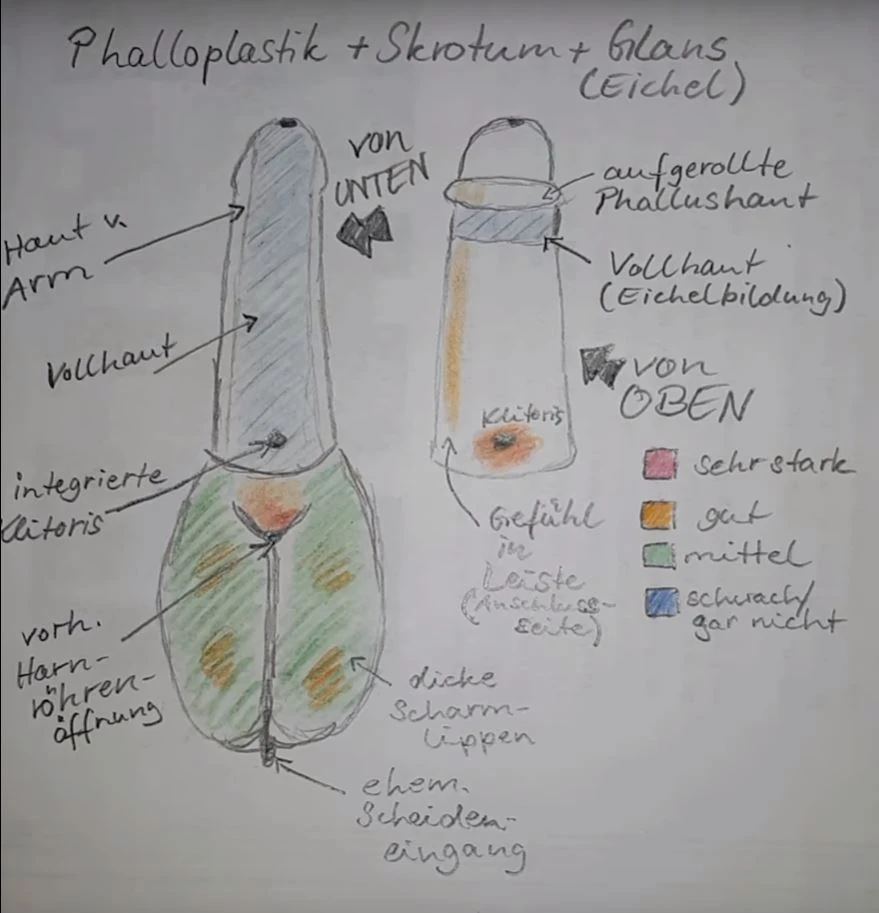 Phalloplastik + Skrotum + Glans
(Eichel)
von
UNTEN
Haut v.
Arm
Vollhaut
integrierte
Klitoris
vorh.
Harn-
röhren-
öffnung
aufgerollte
Phallushaut
Vollhaut
(Eichelbildung)
von
OBEN
Klitoris
Gefühl
in
Leiste
(Anschluss-
seite)
sehr stark
gut
mittel
schwach/
gar nicht
dicke
Scham-
lippen
ehem.
Scheiden-
eingang